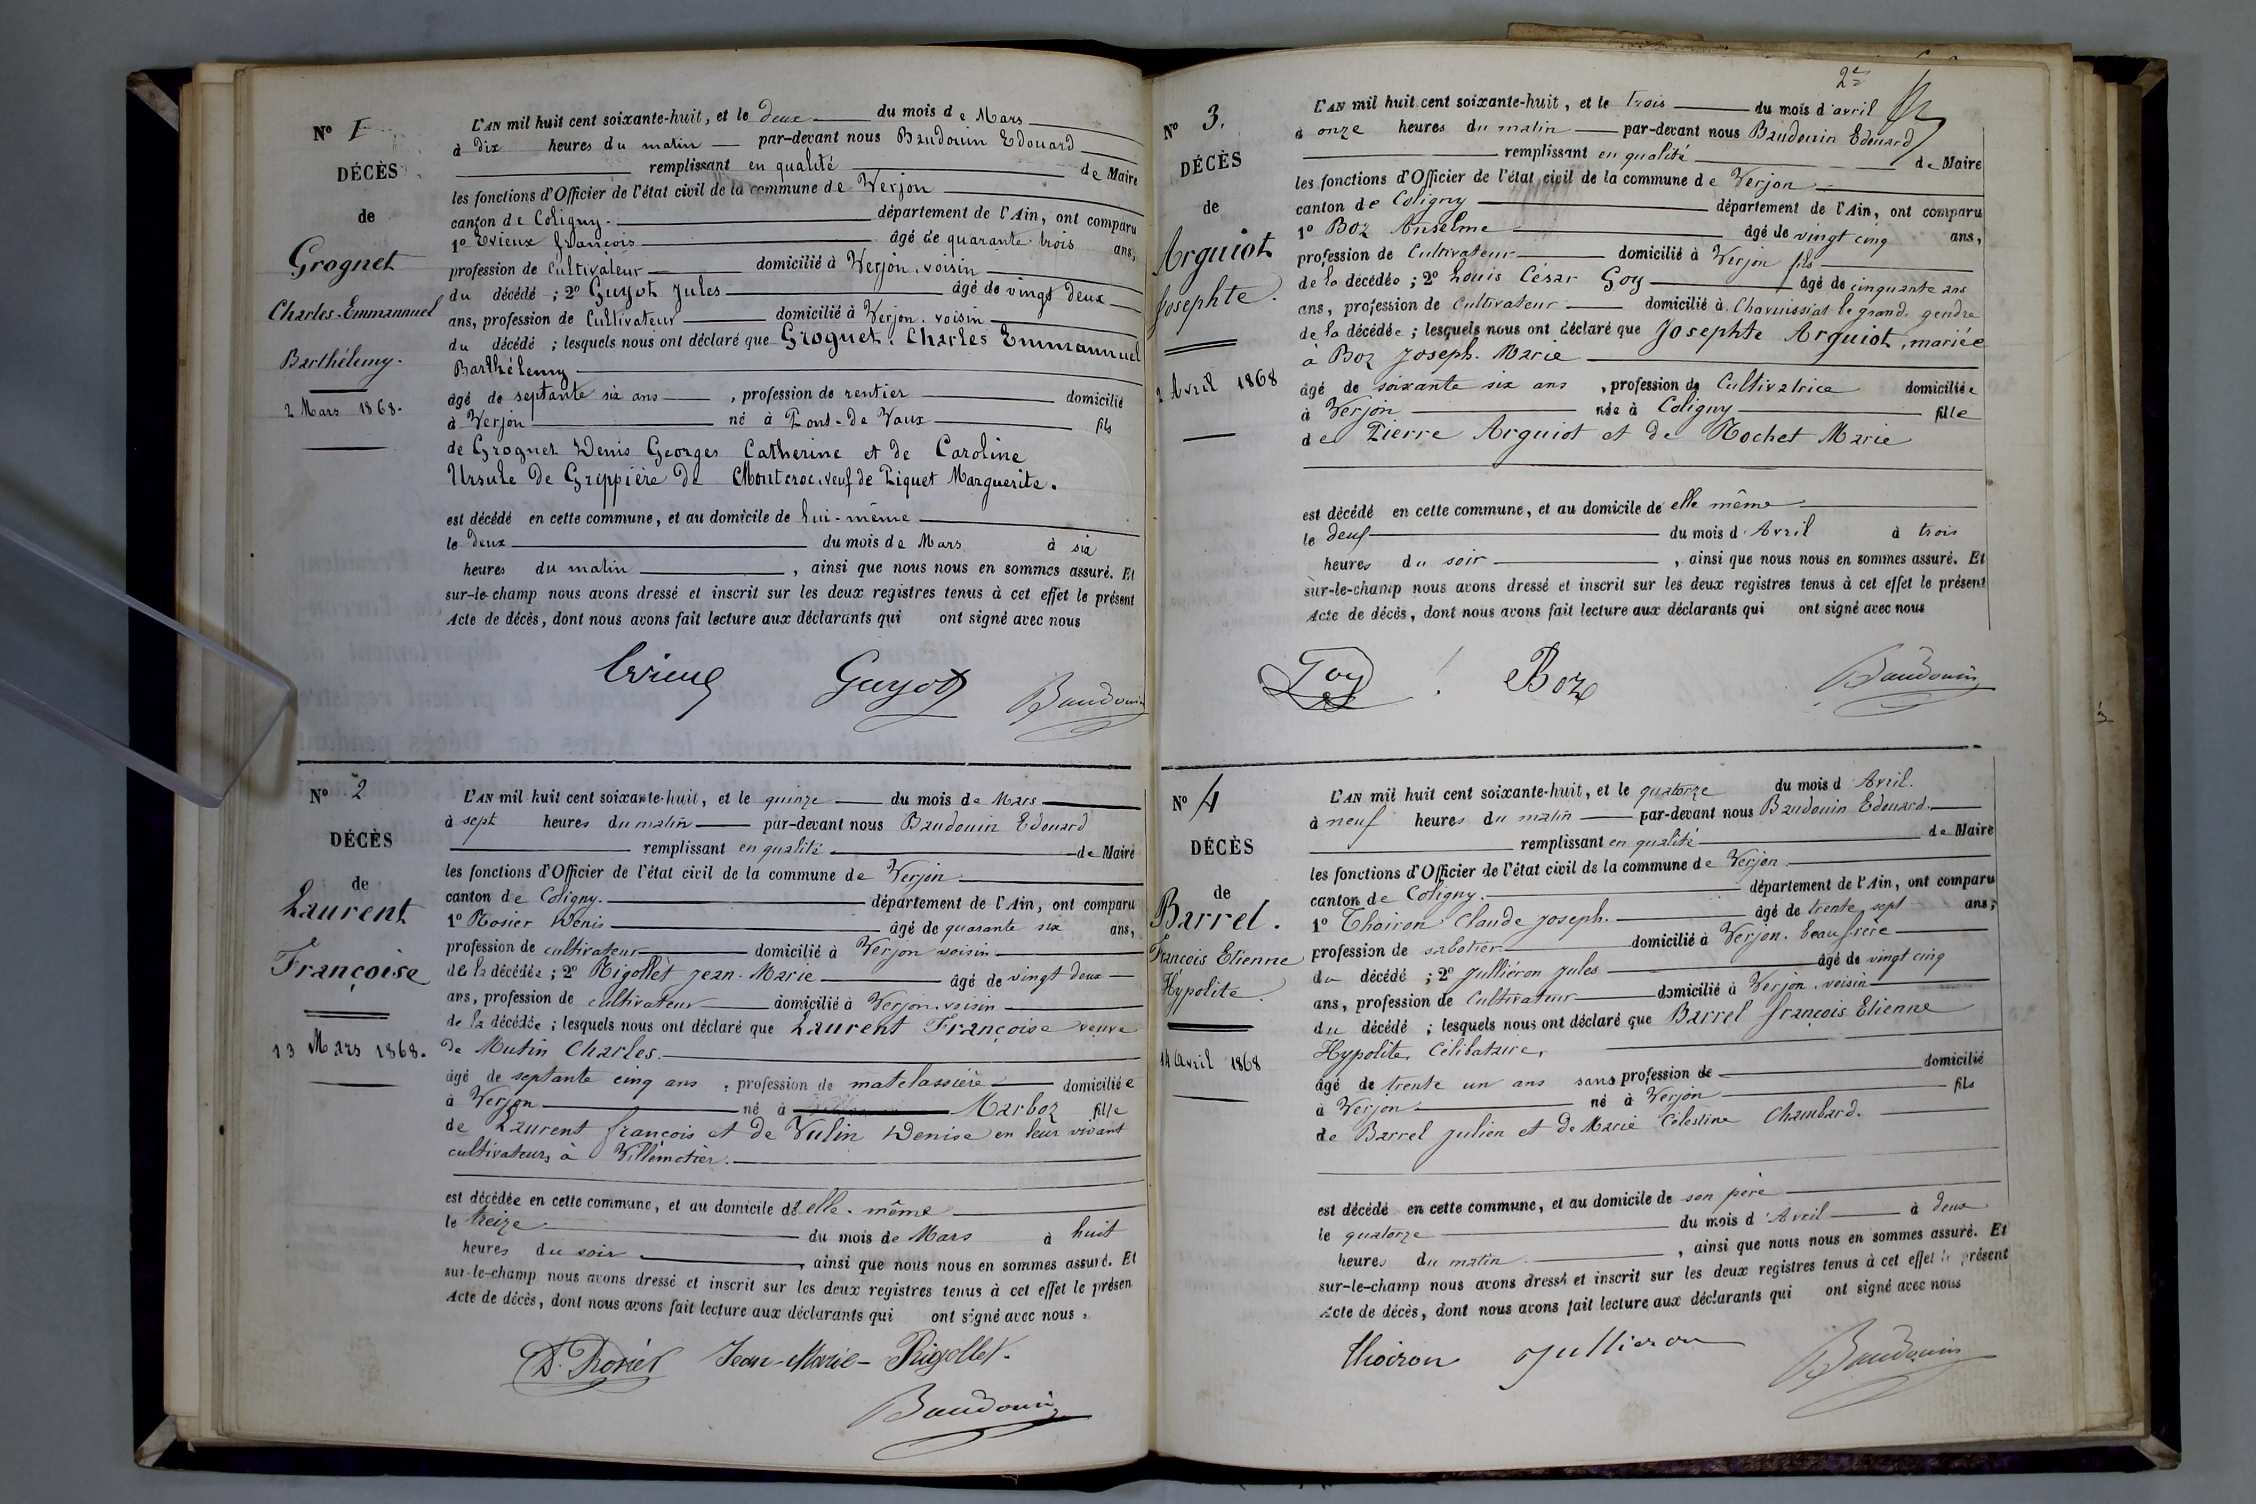 N° 1
DÉCÈS
de
Grognet
Charles-Emmanuel
Barthélemy.
2 Mars 1868.
L'AN mil huit cent soixante-huit, et le deux du mois de Mars
à dix heures du matin par-devant nous Baudouin Edouard
remplissant en qualité de Maire
les fonctions d'Officier de l'état civil de la commune de Verjon
canton de Coligny. département de l'Ain, ont comparu
1° Evieux françois âgé de quarante trois ans,
profession de Cultivateur domicilié à Verjon, voisin
du décédé ; 2° Guyot Jules âgé de vingt deux
ans, profession de Cultivateur domicilié à Verjon, voisin
du décédé ; lesquels nous ont déclaré que Grognet, Charles Emmannuel
Barthélemy
âgé de septante six ans , profession de rentier domicilié
à Verjon né à Pont-de Vaux fils
de Grognet Denis Georges Catherine et de Caroline
Ursule De Greppière De Montcroc, veuf de Piquet Marguerite.
est décédé en cette commune, et au domicile de lui-même
le deux du mois de Mars à six
heures du matin , ainsi que nous nous en sommes assuré. Et
sur-le-champ nous avons dressé et inscrit sur les deux registres tenus à cet effet le présent
Acte de décès, dont nous avons fait lecture aux déclarants qui ont signé avec nous
Evieux Guyot Baudouin
N° 2
DÉCÈS
de
Laurent
Françoise
13 Mars 1868.
L'AN mil huit cent soixante-huit, et le quinze du mois de Mars
à sept heures du matin par-devant nous Baudouin Edouard
remplissant en qualité de Maire
les fonctions d'Officier de l'état civil de la commune de Verjon
canton de Coligny. département de l'Ain, ont comparu
1° Rosier Denis âgé de quarante six ans,
profession de cultivateur domicilié à Verjon voisin
de la décédée ; 2° Rigollet Jean-Marie âgé de vingt deux
ans, profession de cultivateur domicilié à Verjon, voisin
de la décédée ; lesquels nous ont déclaré que Laurent Françoise veuve
de Mutin Charles.
âgé de septante cinq ans , profession de matelassière domiciliée
à Verjon né à Marboz fille
de Laurent françois et de Vulin Denise en leur vivant
cultivateurs à Villemotier.
est décédée en cette commune, et au domicile d'elle-même
le treize du mois de Mars à huit
heures du soir , ainsi que nous nous en sommes assuré. Et
sur-le-champ nous avons dressé et inscrit sur les deux registres tenus à cet effet le présen
Acte de décès, dont nous avons fait lecture aux déclarants qui ont signé avec nous.
D. Rosier Jean-Marie-Rigollet.
Baudouin
2e
N° 3.
DÉCÈS
de
Arguiot
Josephte.
2 Avril 1868
L'AN mil huit cent soixante-huit, et le trois du mois d'avril
à onze heures du matin par-devant nous Baudouin Edouard
remplissant en qualité de Maire
les fonctions d'Officier de l'état civil de la commune de Verjon
canton de Coligny département de l'Ain, ont comparu
1° Boz Anselme âgé de vingt cinq ans,
profession de Cultivateur domicilié à Verjon fils
de la décédée ; 2° Louis César Goy âgé de cinquante ans
ans, profession de Cultivateur domicilié à Chavuissiat le grand, gendre
de la décédée ; lesquels nous ont déclaré que Josephte Arguiot, mariée
à Boz Joseph-Marie
âgé de soixante six ans , profession de Cultivatrice domiciliée
à Verjon née à Coligny fille
de Pierre Arguiot et de Rochet Marie
est décédé en cette commune, et au domicile de elle même
le deux du mois d'Avril à trois
heures du soir , ainsi que nous nous en sommes assuré. Et
sur-le-champ nous avons dressé et inscrit sur les deux registres tenus à cet effet le présent
Acte de décès, dont nous avons fait lecture aux déclarants qui ont signé avec nous
Goy Boz Baudouin
N° 4
DÉCÈS
de
Barrel.
Francois Etienne
Hypolite.
14 avril 1868
L'AN mil huit cent soixante-huit, et le quatorze du mois d'Avril.
à neuf heures du matin par-devant nous Baudouin Edouard.
remplissant en qualité de Maire
les fonctions d'Officier de l'état civil de la commune de Verjon
canton de Coligny. département de l'Ain, ont comparu
1° Thoiron Claude Joseph. âgé de trente sept ans,
profession de sabotier domicilié à Verjon. beau frère
du décédé ; 2° Julliéron Jules âgé de vingt cinq
ans, profession de Cultivateur domicilié à Verjon, voisin
du décédé ; lesquels nous ont déclaré que Barrel françois Etienne
Hypolite, Célibataire,
âgé de trente un ans sans profession de domicilié
à Verjon né à Verjon fils
de Barrel Julien et de Marie Célestine Chambard.
est décédé en cette commune, et au domicile de son père
le quatorze du mois d'Avril à deux
heures du matin , ainsi que nous nous en sommes assuré. Et
sur-le-champ nous avons dressé et inscrit sur les deux registres tenus à cet effet le présent
Acte de décès, dont nous avons fait lecture aux déclarants qui ont signé avec nous
Thoiron Jullieron Baudouin